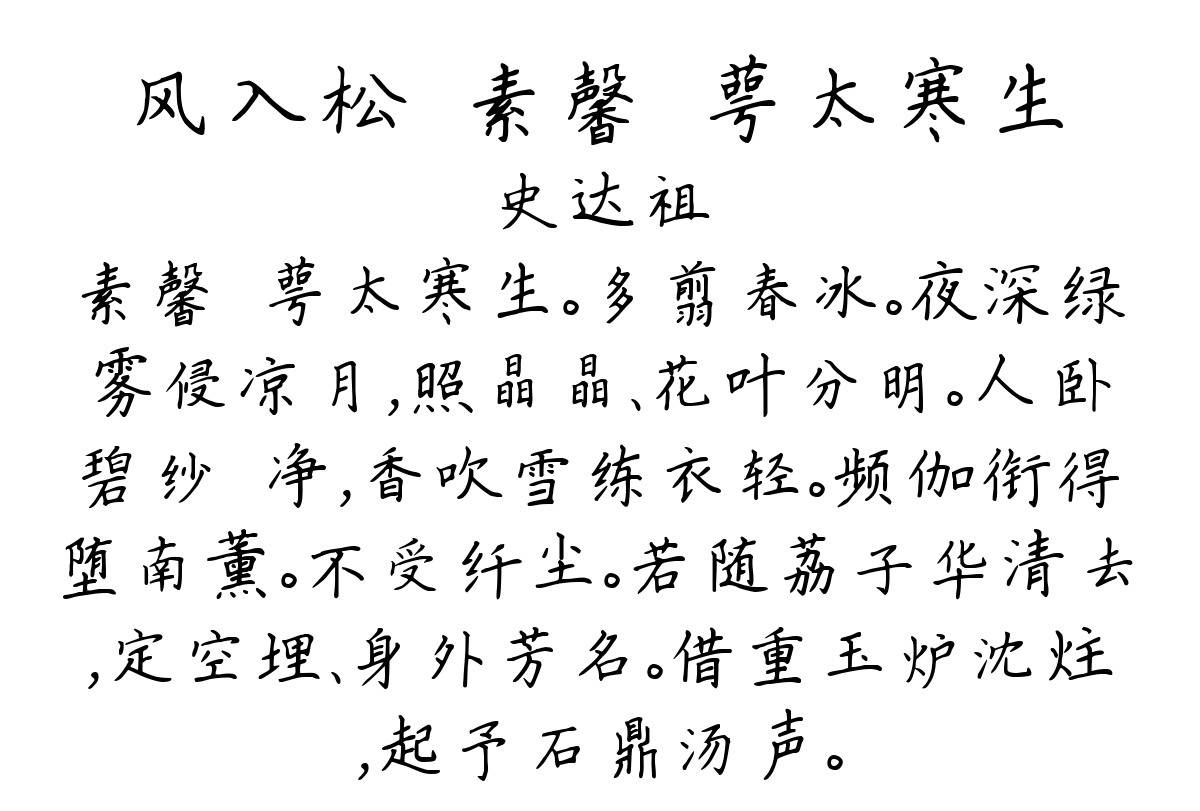 风入松 素馨 萼太寒生
史达祖
素馨 萼太寒生。多翦春冰。夜深绿
雾侵凉月,照晶晶、花叶分明。人卧
碧纱 净,香吹雪练衣轻。频伽衔得
堕南薰。不受纤尘。若随荔子华清去
,定空埋、身外芳名。借重玉炉沈炷
,起予石鼎汤声。